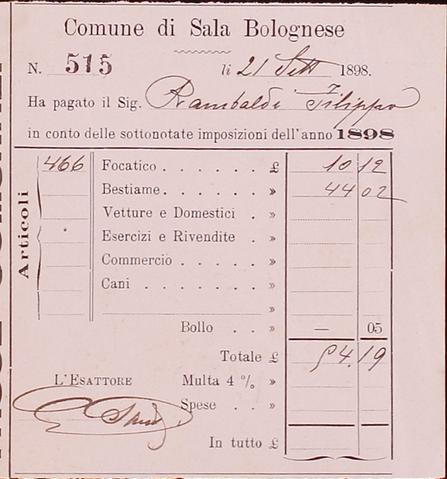 Comune di Sala Bolognese
N. 515 li 21 Sett 1898.
Ha pagato il Sig. Rambaldi Filippo
in conto delle sottonotate imposizioni dell'anno 1898
Articoli
466 Focatico . . . . . . £ 10 12
Bestiame. . . . . . » 44 02
Vetture e Domestici . »
Esercizi e Rivendite . »
Commercio . . . . . »
Cani . . . . . . . »
»
Bollo . . » — 05
Totale £ 54.19
L'ESATTORE Multa 4 % »
Spese . . »
In tutto £